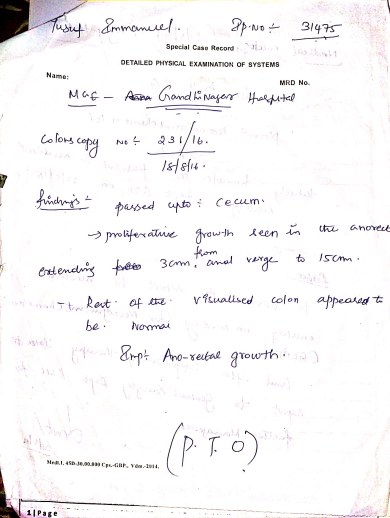 Yusuf Emmanuel. Ip.no :- 31475
Special Case Record
DETAILED PHYSICAL EXAMINATION OF SYSTEMS
Name:
MRD No.
MGE - Gandhinagar Hospital
Colonscopy no :- 231/16.
18/8/16.
findings :- passed upto : Cecum.
→ proliferative growth seen in the anorect
extending from 3cm, anal verge to 15cm.
- Rest of the visualised colon appeared to
be. Normal
Imp: Ano-rectal growth.
(P.T.O)
MedI.1, 45D-30,00,000 Cps.-GBP., Vdm.-2014.
1 | Page